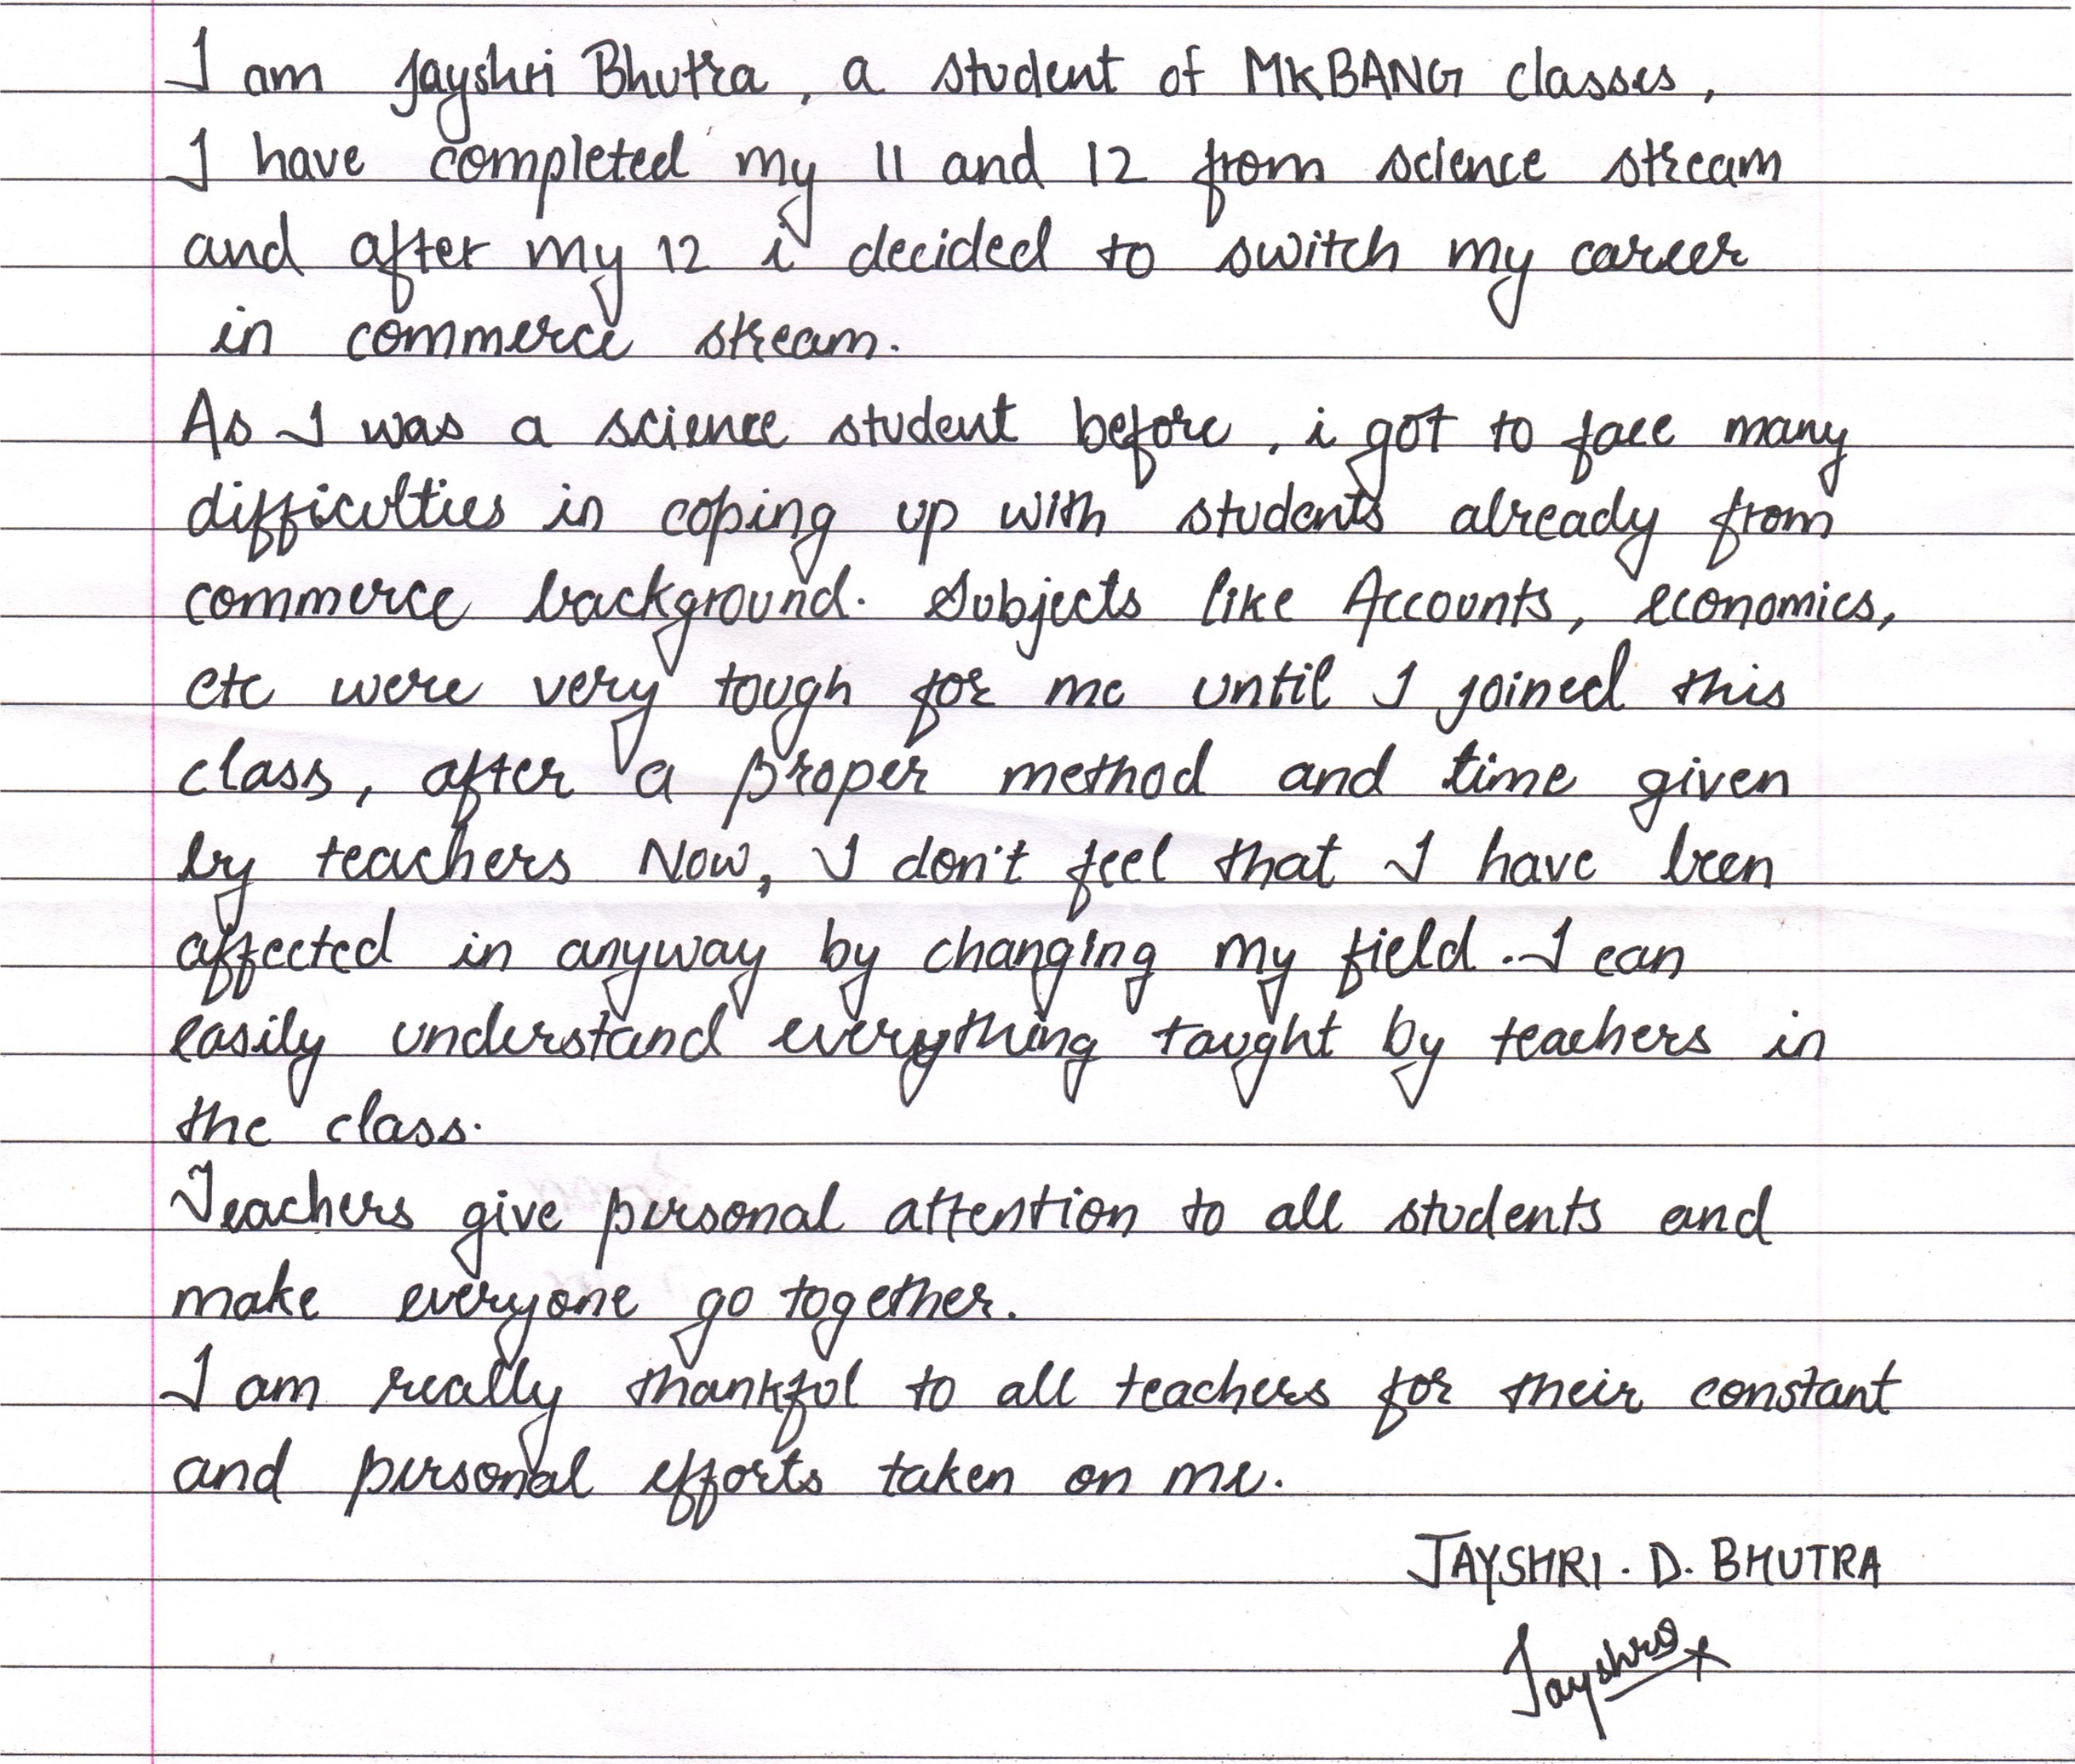 I am Jayshri Bhutra, a student of MKBANG classes,
I have completed my 11 and 12 from science stream
and after my 12 i decided to switch my career
in commerce stream.
As I was a science student before, i got to face many
difficulties in coping up with students already from
commerce background. Subjects like Accounts, economics,
etc were very tough for me until I joined this
class, after a proper method and time given
by teachers Now, I don't feel that I have been
affected in anyway by changing my field. I can
easily understand everything taught by teachers in
the class.
Teachers give personal attention to all students and
make everyone go together.
I am really thankful to all teachers for their constant
and personal efforts taken on me.
JAYSHRI. D. BHUTRA
Jayshree